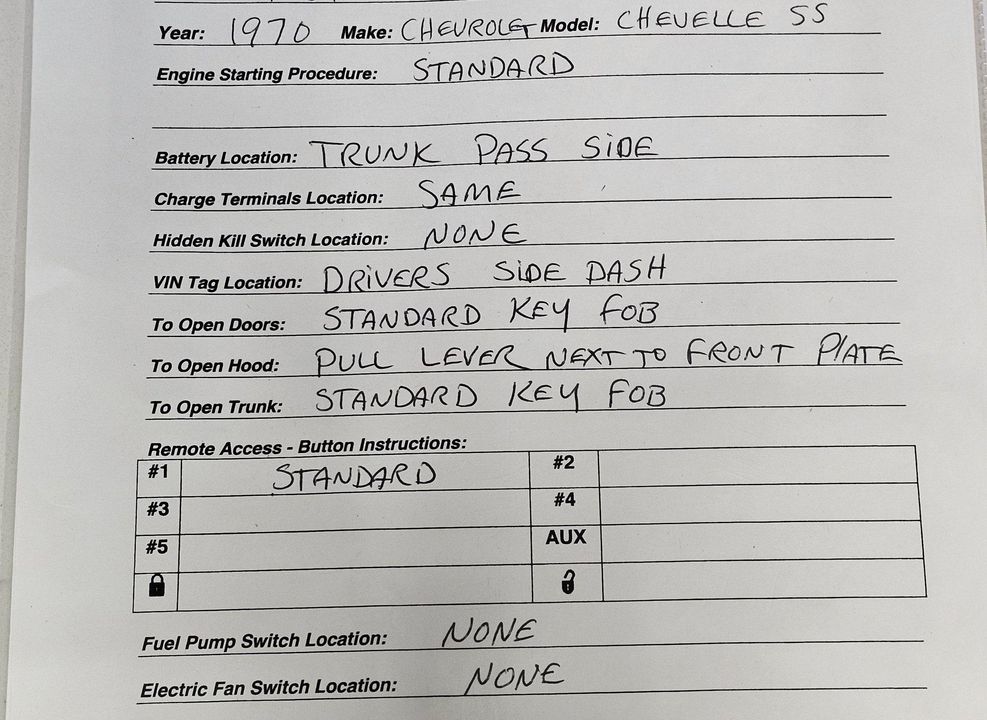 Year: 1970 Make: CHEVROLET Model: CHEVELLE SS
Engine Starting Procedure: STANDARD
Battery Location: TRUNK PASS SIDE
Charge Terminals Location: SAME
Hidden Kill Switch Location: NONE
VIN Tag Location: DRIVERS SIDE DASH
To Open Doors: STANDARD KEY FOB
To Open Hood: PULL LEVER NEXT TO FRONT PLATE
To Open Trunk: STANDARD KEY FOB
Remote Access - Button Instructions:
#1 STANDARD #2
#3 #4
#5 AUX
Fuel Pump Switch Location: NONE
Electric Fan Switch Location: NONE